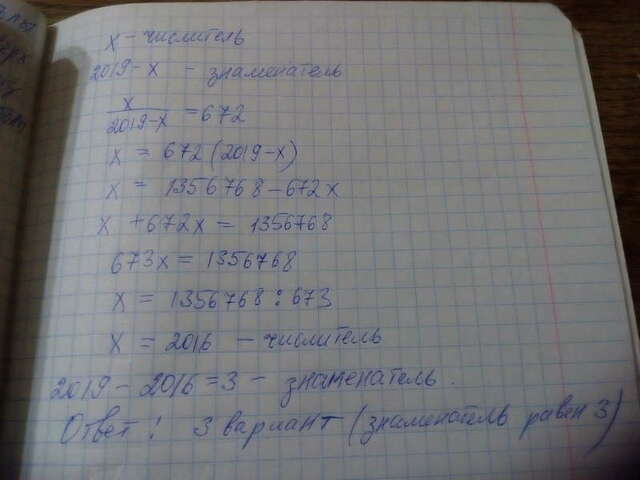 x – числитель
2019-x – знаменатель
x/2019-x = 672
x = 672 (2019-x)
x = 1356768 - 672x
x + 672x = 1356768
673x = 1356768
x = 1356768 : 673
x = 2016 – числитель
2019 - 2016 = 3 – знаменатель.
Ответ: 3 вариант (знаменатель равен 3)